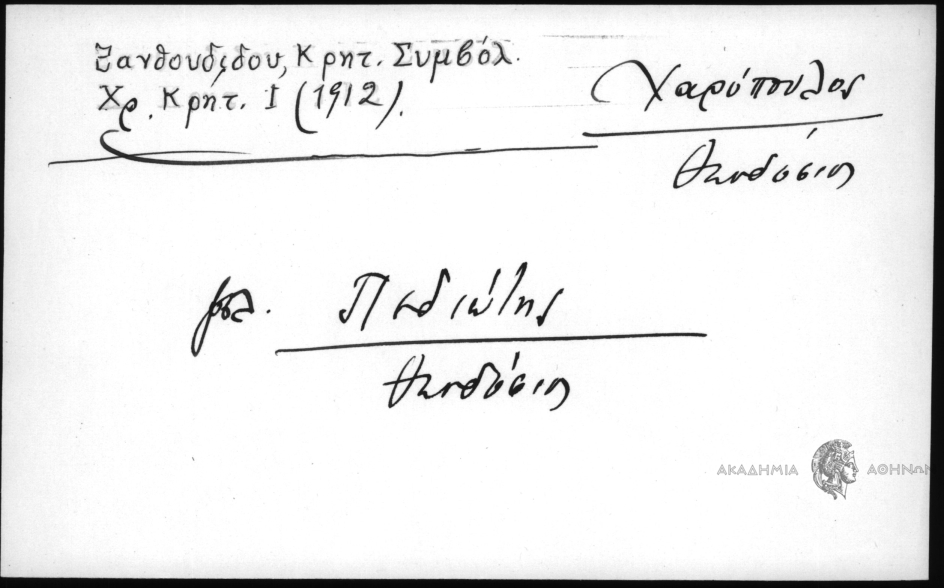 Ξανθουδίδου, Κρητ. Συμβόλ.
Χρ. Κρητ. Ι (1912).
Χαρόπουλος
Θεοδόσιος
βλ. Πεδιώτης
Θεοδόσιος
ΑΚΑΔΗΜΙΑ ΑΘΗΝΩΝ